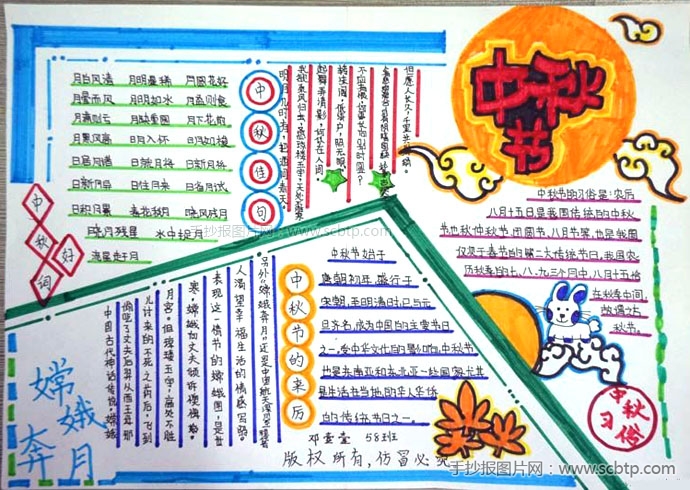 中秋节
中秋好词
月白风清 月明星稀 月圆花好
月晕而风 月明如水
月满则亏 月下花前
月黑风高 日入怀
日居月诸 日就月将
日新月异 日往月来 日省月试
日积月累 春花秋月 晓风残月
晓月残星 水中捞月
流星赶月
中秋佳句
明月几时有，把酒问青天。
我欲乘风归去，
起舞弄清影，何似在人间。
转朱阁，低绮户，照无眠。
不应有恨，何事长向别时圆？
但愿人长久，千里共婵娟。
中秋节的习俗是：农历
八月十五日是我国传统的中秋
节也称仲秋节、团圆节、八月节等，也是我国
仅次于春节的第二大传统节日，我国农
历秋季的七、八、九三个月中，八月十五恰
在秋季中间，
故谓之中
秋节。
中秋习俗
中秋节的来历
中秋节始于
唐朝初年，盛行于
宋朝，至明清时，已与元
旦齐名，成为中国的主要节日
之一。受中华文化的影响，中秋节
也是东南亚和东北亚一些国家尤其
是生活在当地的华人华侨
的传统节日之一。
嫦娥奔月
中国古代神话传说，嫦娥
偷吃了丈夫后羿从西王母那
儿讨来的不死之药后，飞到
月宫。但琼楼玉宇，高处不胜
寒，嫦娥向丈夫倾诉懊悔
表现这一情节的嫦娥图，是世
人渴望幸福生活的情感写照。
58班
版权所有，仿冒必究
手抄报图片网：www.scbtp.com
手抄报图片网：www.scbtp.com